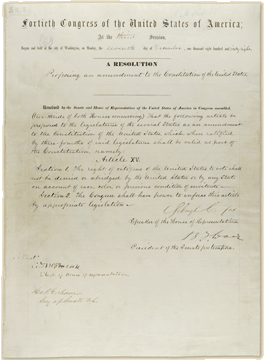 Fortieth Congress of the United States of America;
At the third Session,
Begun and held at the city of Washington, on Monday, the seventh day of December, one thousand eight hundred and sixty-eight
A RESOLUTION
Proposing an amendment to the Constitution of the United States.
Resolved by the Senate and House of Representatives of the United States of America in Congress assembled,
(two-thirds of both Houses concurring) That the following article be
proposed to the legislatures of the several States as an amendment
to the Constitution of the United States which when ratified
by three fourths of said legislatures shall be valid as part of
the Constitution namely:
Article XV.
Section 1. The right of citizens of the United States to vote shall
not be denied or abridged by the United States or by any State
on account of race, color, or previous condition of servitude
Section 2. The Congress shall have power to enforce this article
by appropriate legislation
Speaker of the House of Representatives
President of the Senate pro tempore.
Attest:
Clerk of House of Representatives